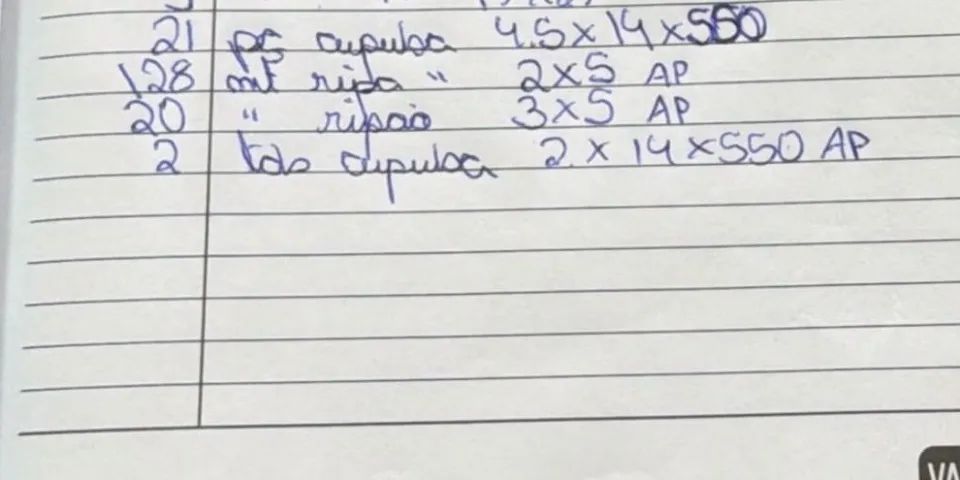 21 pç cupuloa 4.5x14x550
128 mt ripa " 2x5 AP
20 " ripão 3x5 AP
2 tdo cupuloa 2x14x550 AP
VA